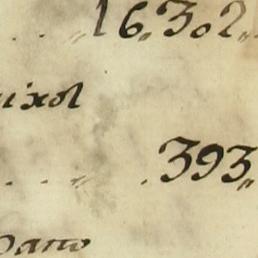 . . „ 16„302„
uixol
. . . „ . 393„
pano